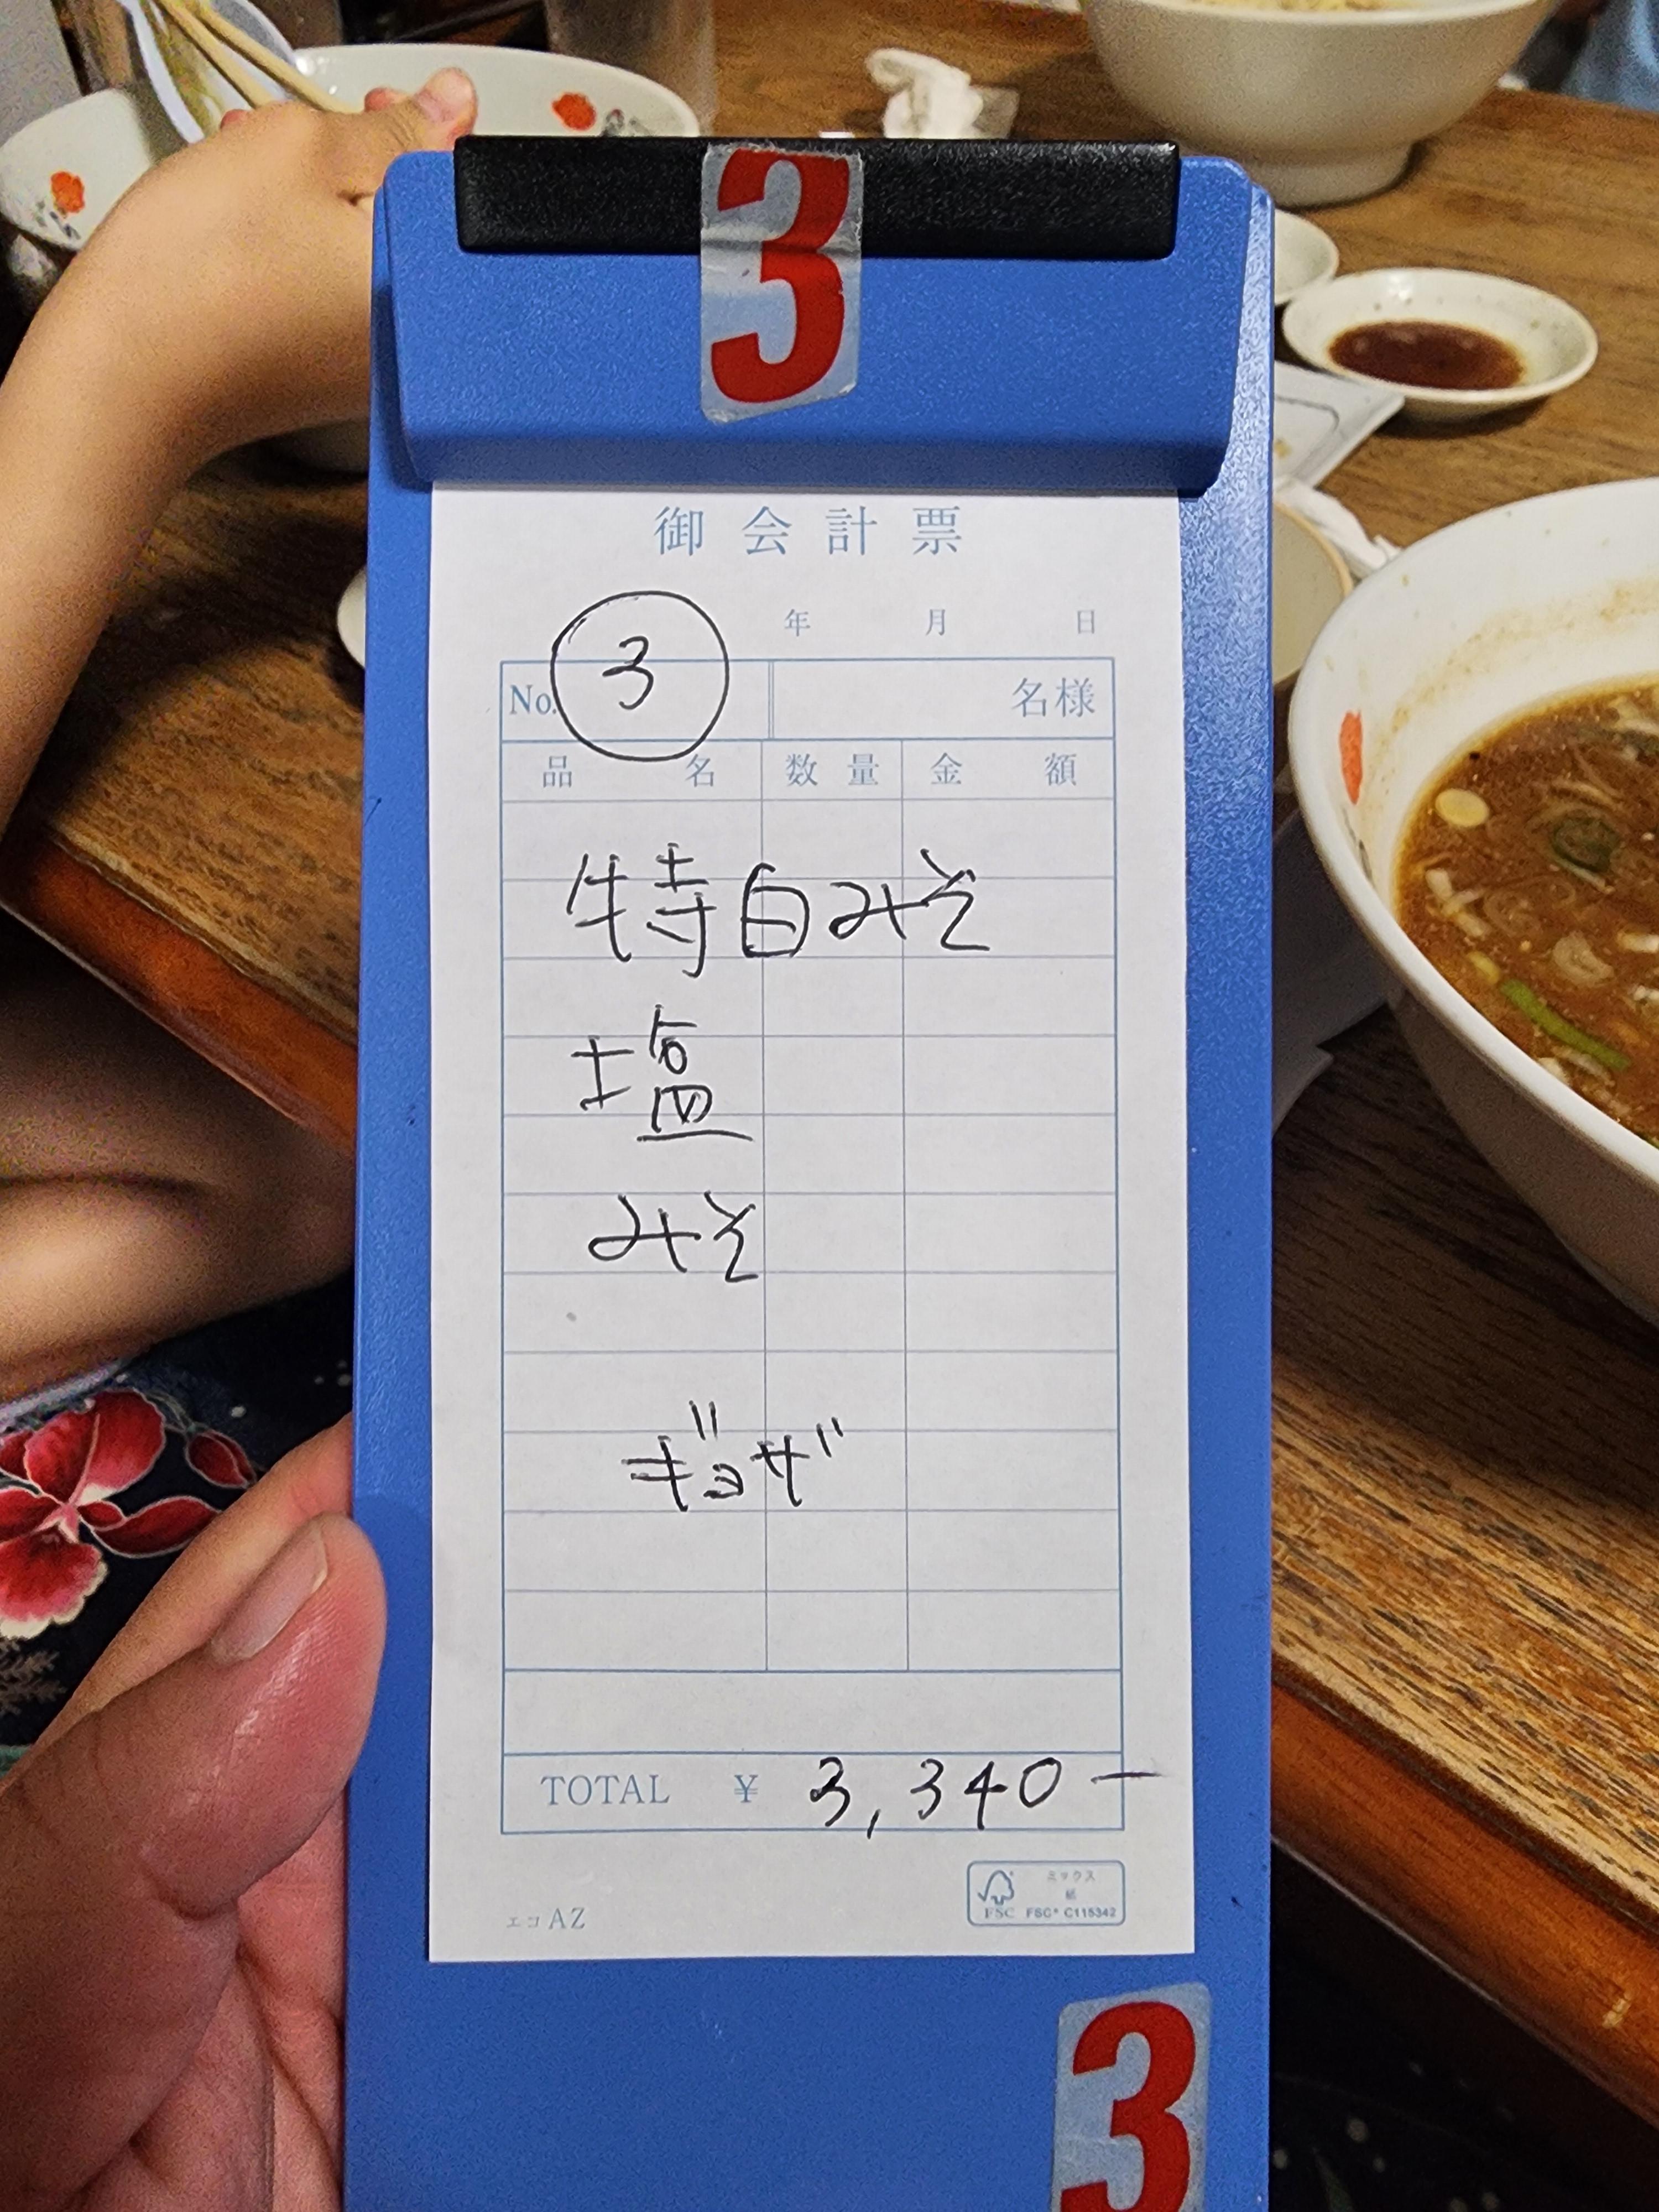 3
御会計票
年 月 日
No. 3 名様
品名 数量 金額
特白みそ
塩
みそ
ギョザ
TOTAL ¥ 3,340-
エコAZ
FSC
ミックス
紙
FSC® C115342
3